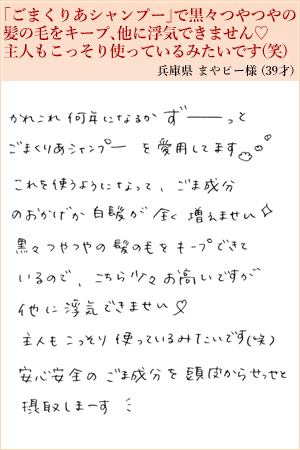 「ごまくりあシャンプー」で黒々つやつやの
髪の毛をキープ、他に浮気できません♡
主人もこっそり使っているみたいです(笑)
兵庫県 まやビー様 (39才)
かれこれ何年になるか ずーーっと
ごまくりあシャンプー を愛用してます
これを使うようになって、ごま成分
のおかげか白髪が全く増えません
黒々つやつやの髪の毛をキープできて
いるので、こちら少々お高いですが
他に浮気できません♡
主人もこっそり使っているみたいです(笑)
安心安全のごま成分を頭皮からせっせと
摂取しまーす